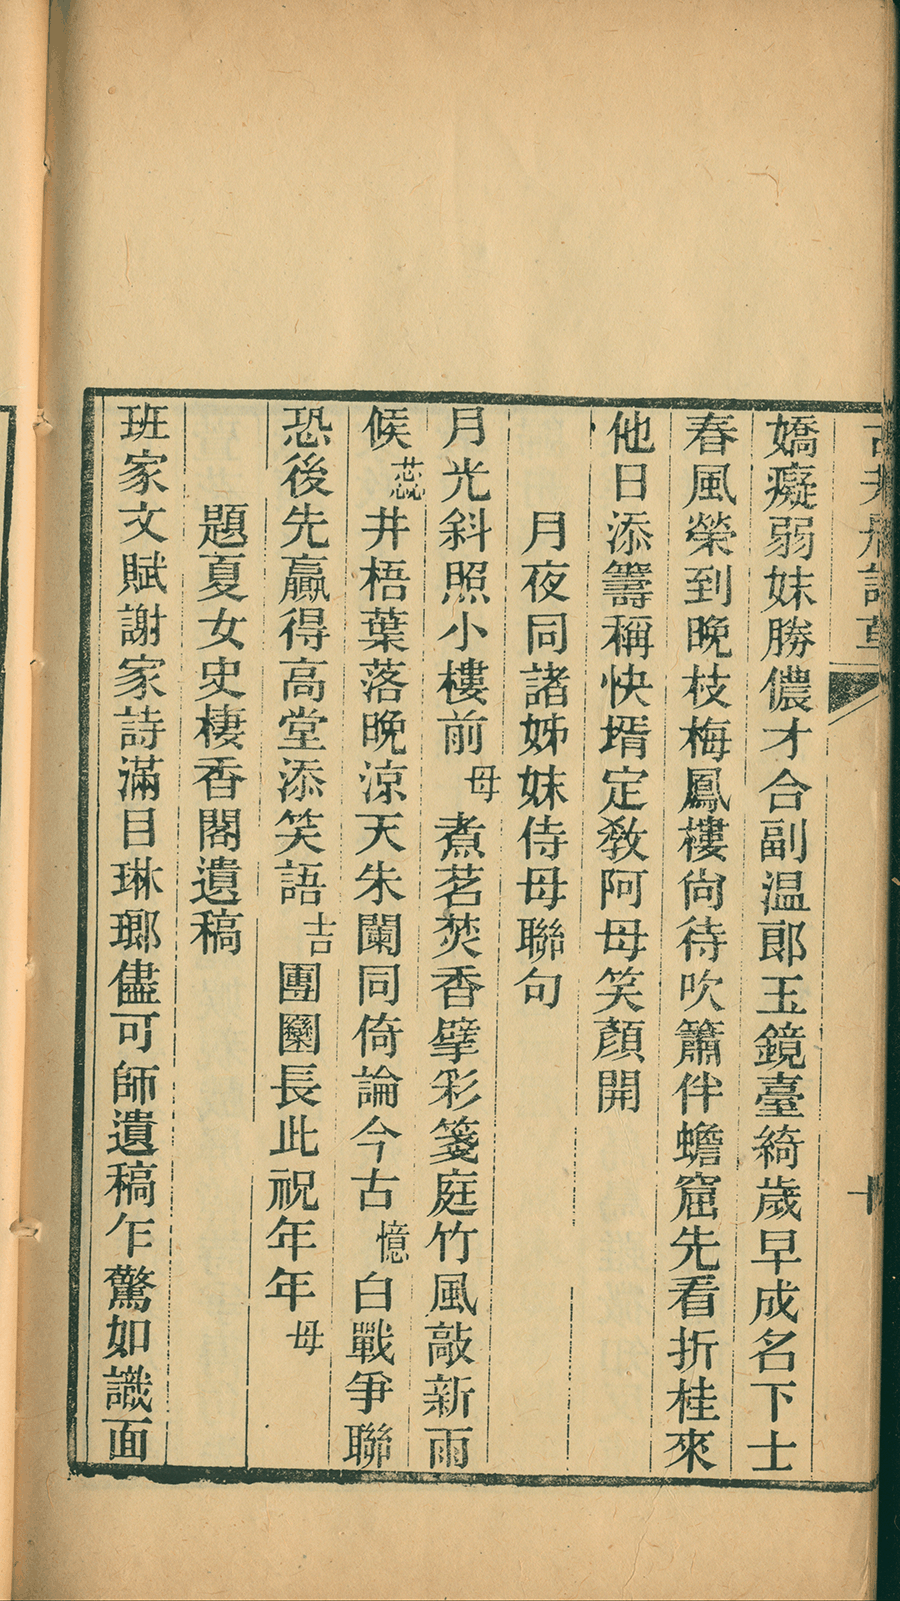 嬌癡弱妹勝儂才合副温郎玉鏡臺綺歲早成名下士
春風榮到晩枝梅鳳樓尙待吹簫伴蟾窟先看折桂來
他日添籌稱快壻定敎阿母笑顏開
月夜同諸姊妹侍母聯句
月光斜照小樓前母煮茗焚香擘彩箋庭竹風敲新雨
候蕊井梧葉落晩涼天朱闌同倚論今古憶白戰爭聯
恐後先贏得高堂添笑語吉團圞長此祝年年母
題夏女史棲香閣遺稿
班家文賦謝家詩滿目琳瑯儘可師遺稿乍驚如識面